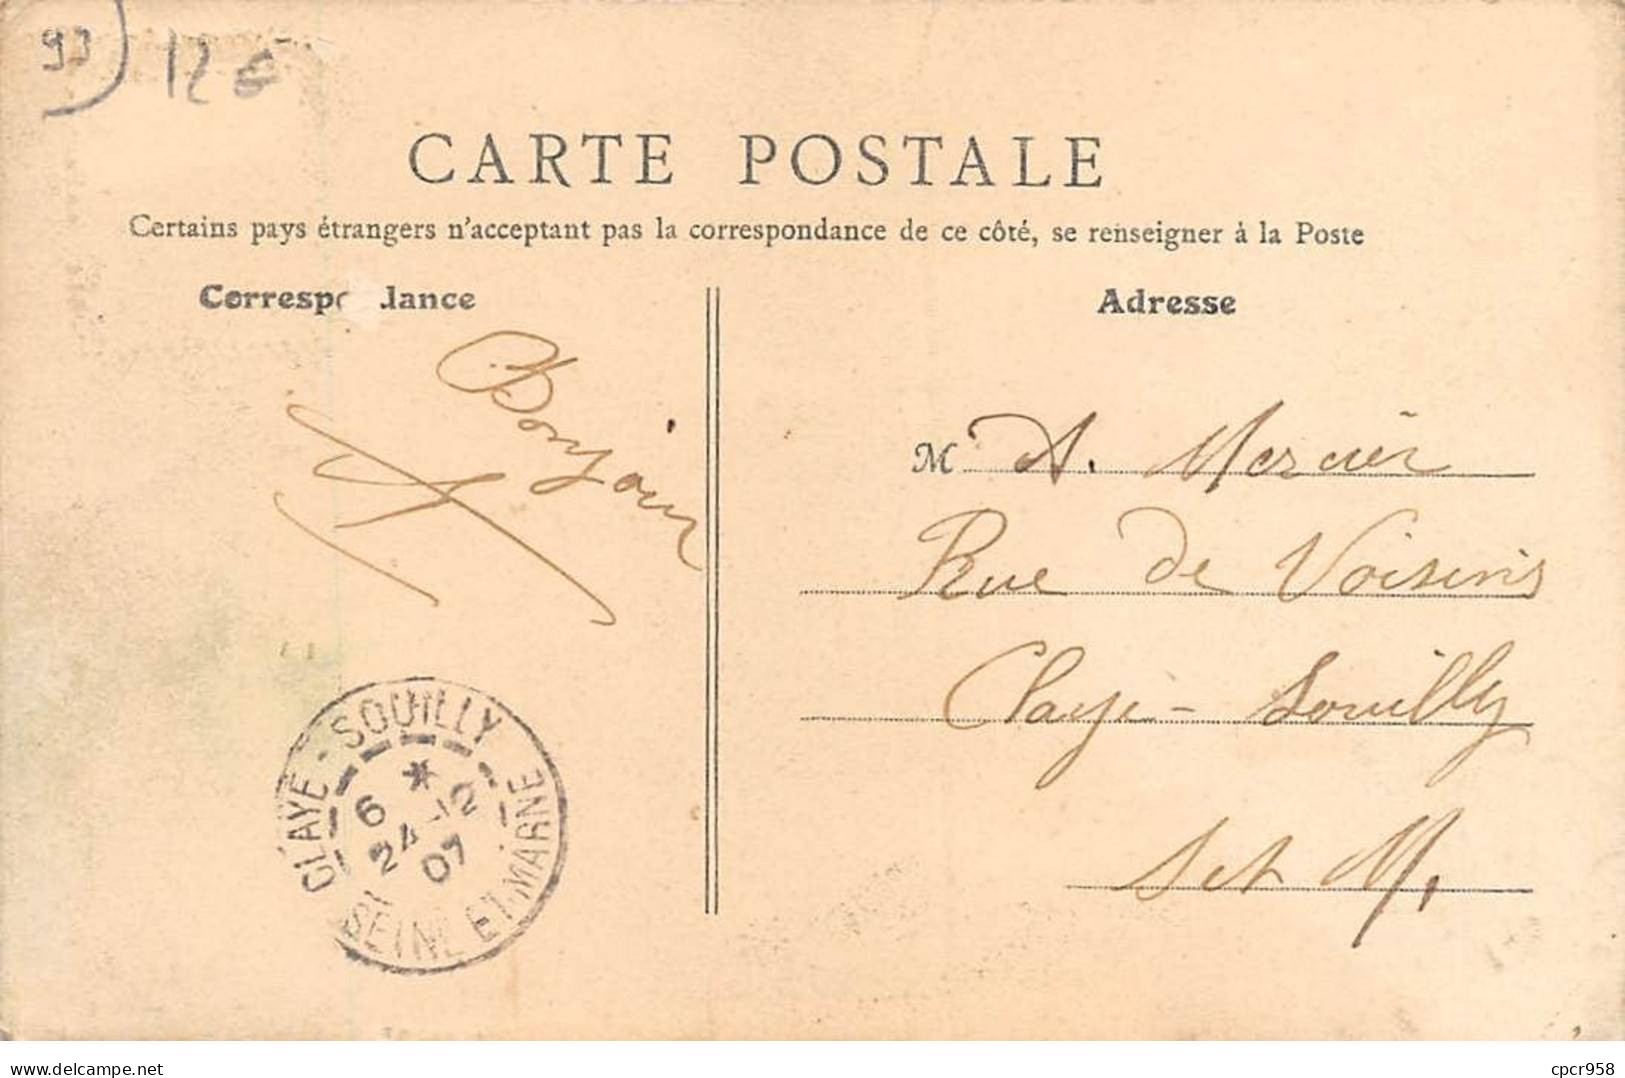 93 12€
CARTE POSTALE
Certains pays étrangers n'acceptant pas la correspondance de ce côté, se renseigner à la Poste
Corresp dance
Adresse
Bonjour
M A. Mercier
Rue de Voisins
Claye-Souilly
S et M.
CLAYE-SOUILLY
6 *
24-12
07
SEINE ET MARNE
delcampe.net
cpcr958